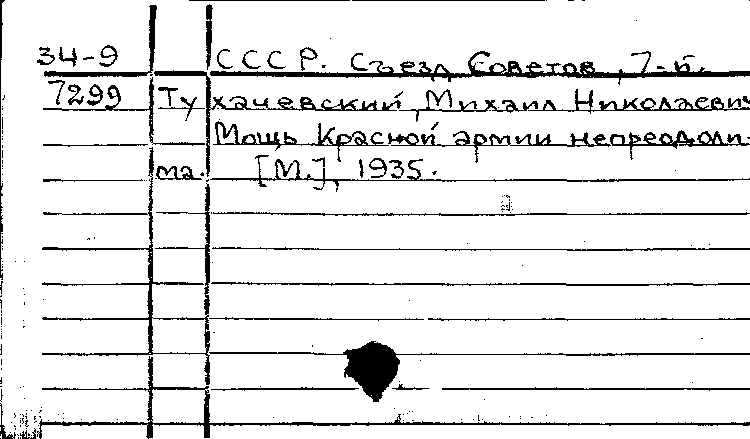 34-9 СССР. Съезд Советов, 7-й.
7299 Тухачевский, Михаил Николаевич
Мощь Красной армии непреодоли-
ма. [М.], 1935.